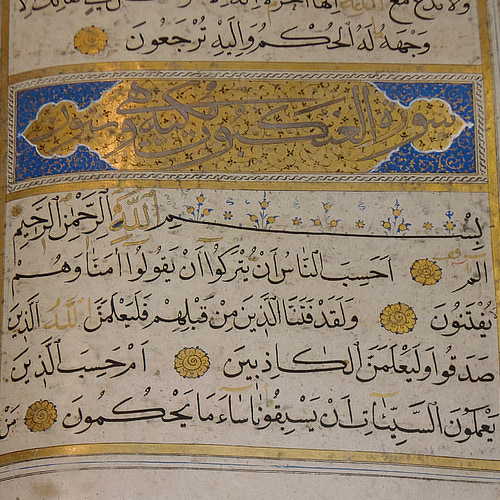 ولا تدع مع الله الها اخر لا اله
وَجْهَهُ لَهُ الْحُكْمُ وَإِلَيْهِ تُرْجَعُونَ
سورة العنكبوت مكية وهي وستون
بِسْمِ اللَّهِ الرَّحْمَنِ الرَّحِيمِ
الم أَحَسِبَ النَّاسُ أَنْ يُتْرَكُوا أَنْ يَقُولُوا آمَنَّا وَهُمْ
يُفْتَنُونَ وَلَقَدْ فَتَنَّا الَّذِينَ مِنْ قَبْلِهِمْ فَلَيَعْلَمَنَّ اللَّهُ الَّذِينَ
صَدَقُوا وَلَيَعْلَمَنَّ الْكَاذِبِينَ أَمْ حَسِبَ الَّذِينَ
يَعْمَلُونَ السَّيِّئَاتِ أَنْ يَسْبِقُونَا سَاءَ مَا يَحْكُمُونَ مَنْ